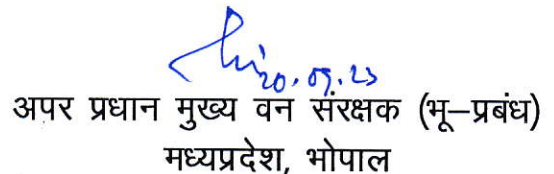 20.09.23
अपर प्रधान मुख्य वन संरक्षक (भू–प्रबंध)
मध्यप्रदेश, भोपाल